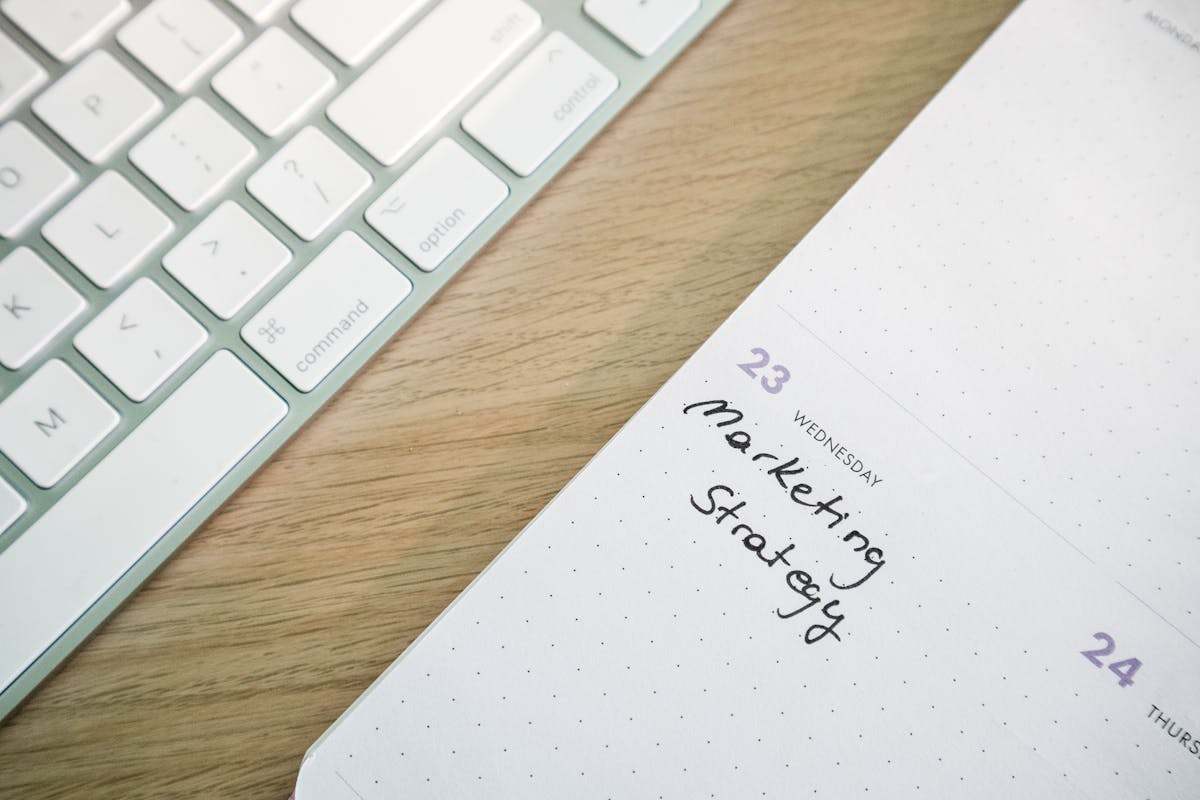 shift
control
option
command
P
O
L
K
M
? /
>
.
<
,
⌘
⌥
^
MONDA
23
WEDNESDAY
Marketing
Strategy
24
THURS